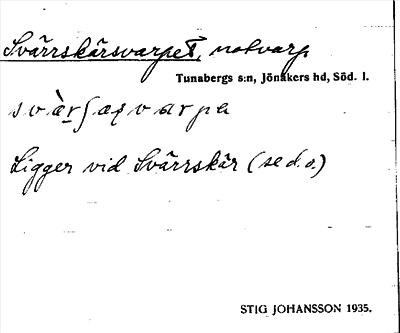 Svärrskärsvarpet, notvarp
Tunabergs s:n, Jönåkers hd, Söd. l.
Ligger vid Svärrskär (se d. o.)
STIG JOHANSSON 1935.